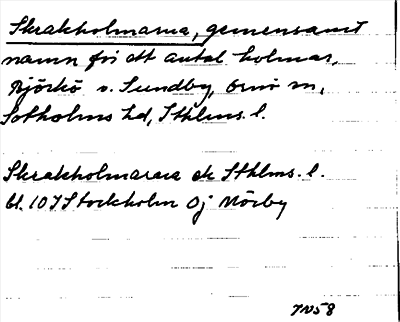 Skrakholmarna, gemensamt
namn för ett antal holmar,
Björkö v. Sundby, Ornö sn,
Sotholms hd, Sthlms. l.
Skrakholmarna ek Sthlms. l.
bl. 10J Stockholm Oj Mörby
7N58